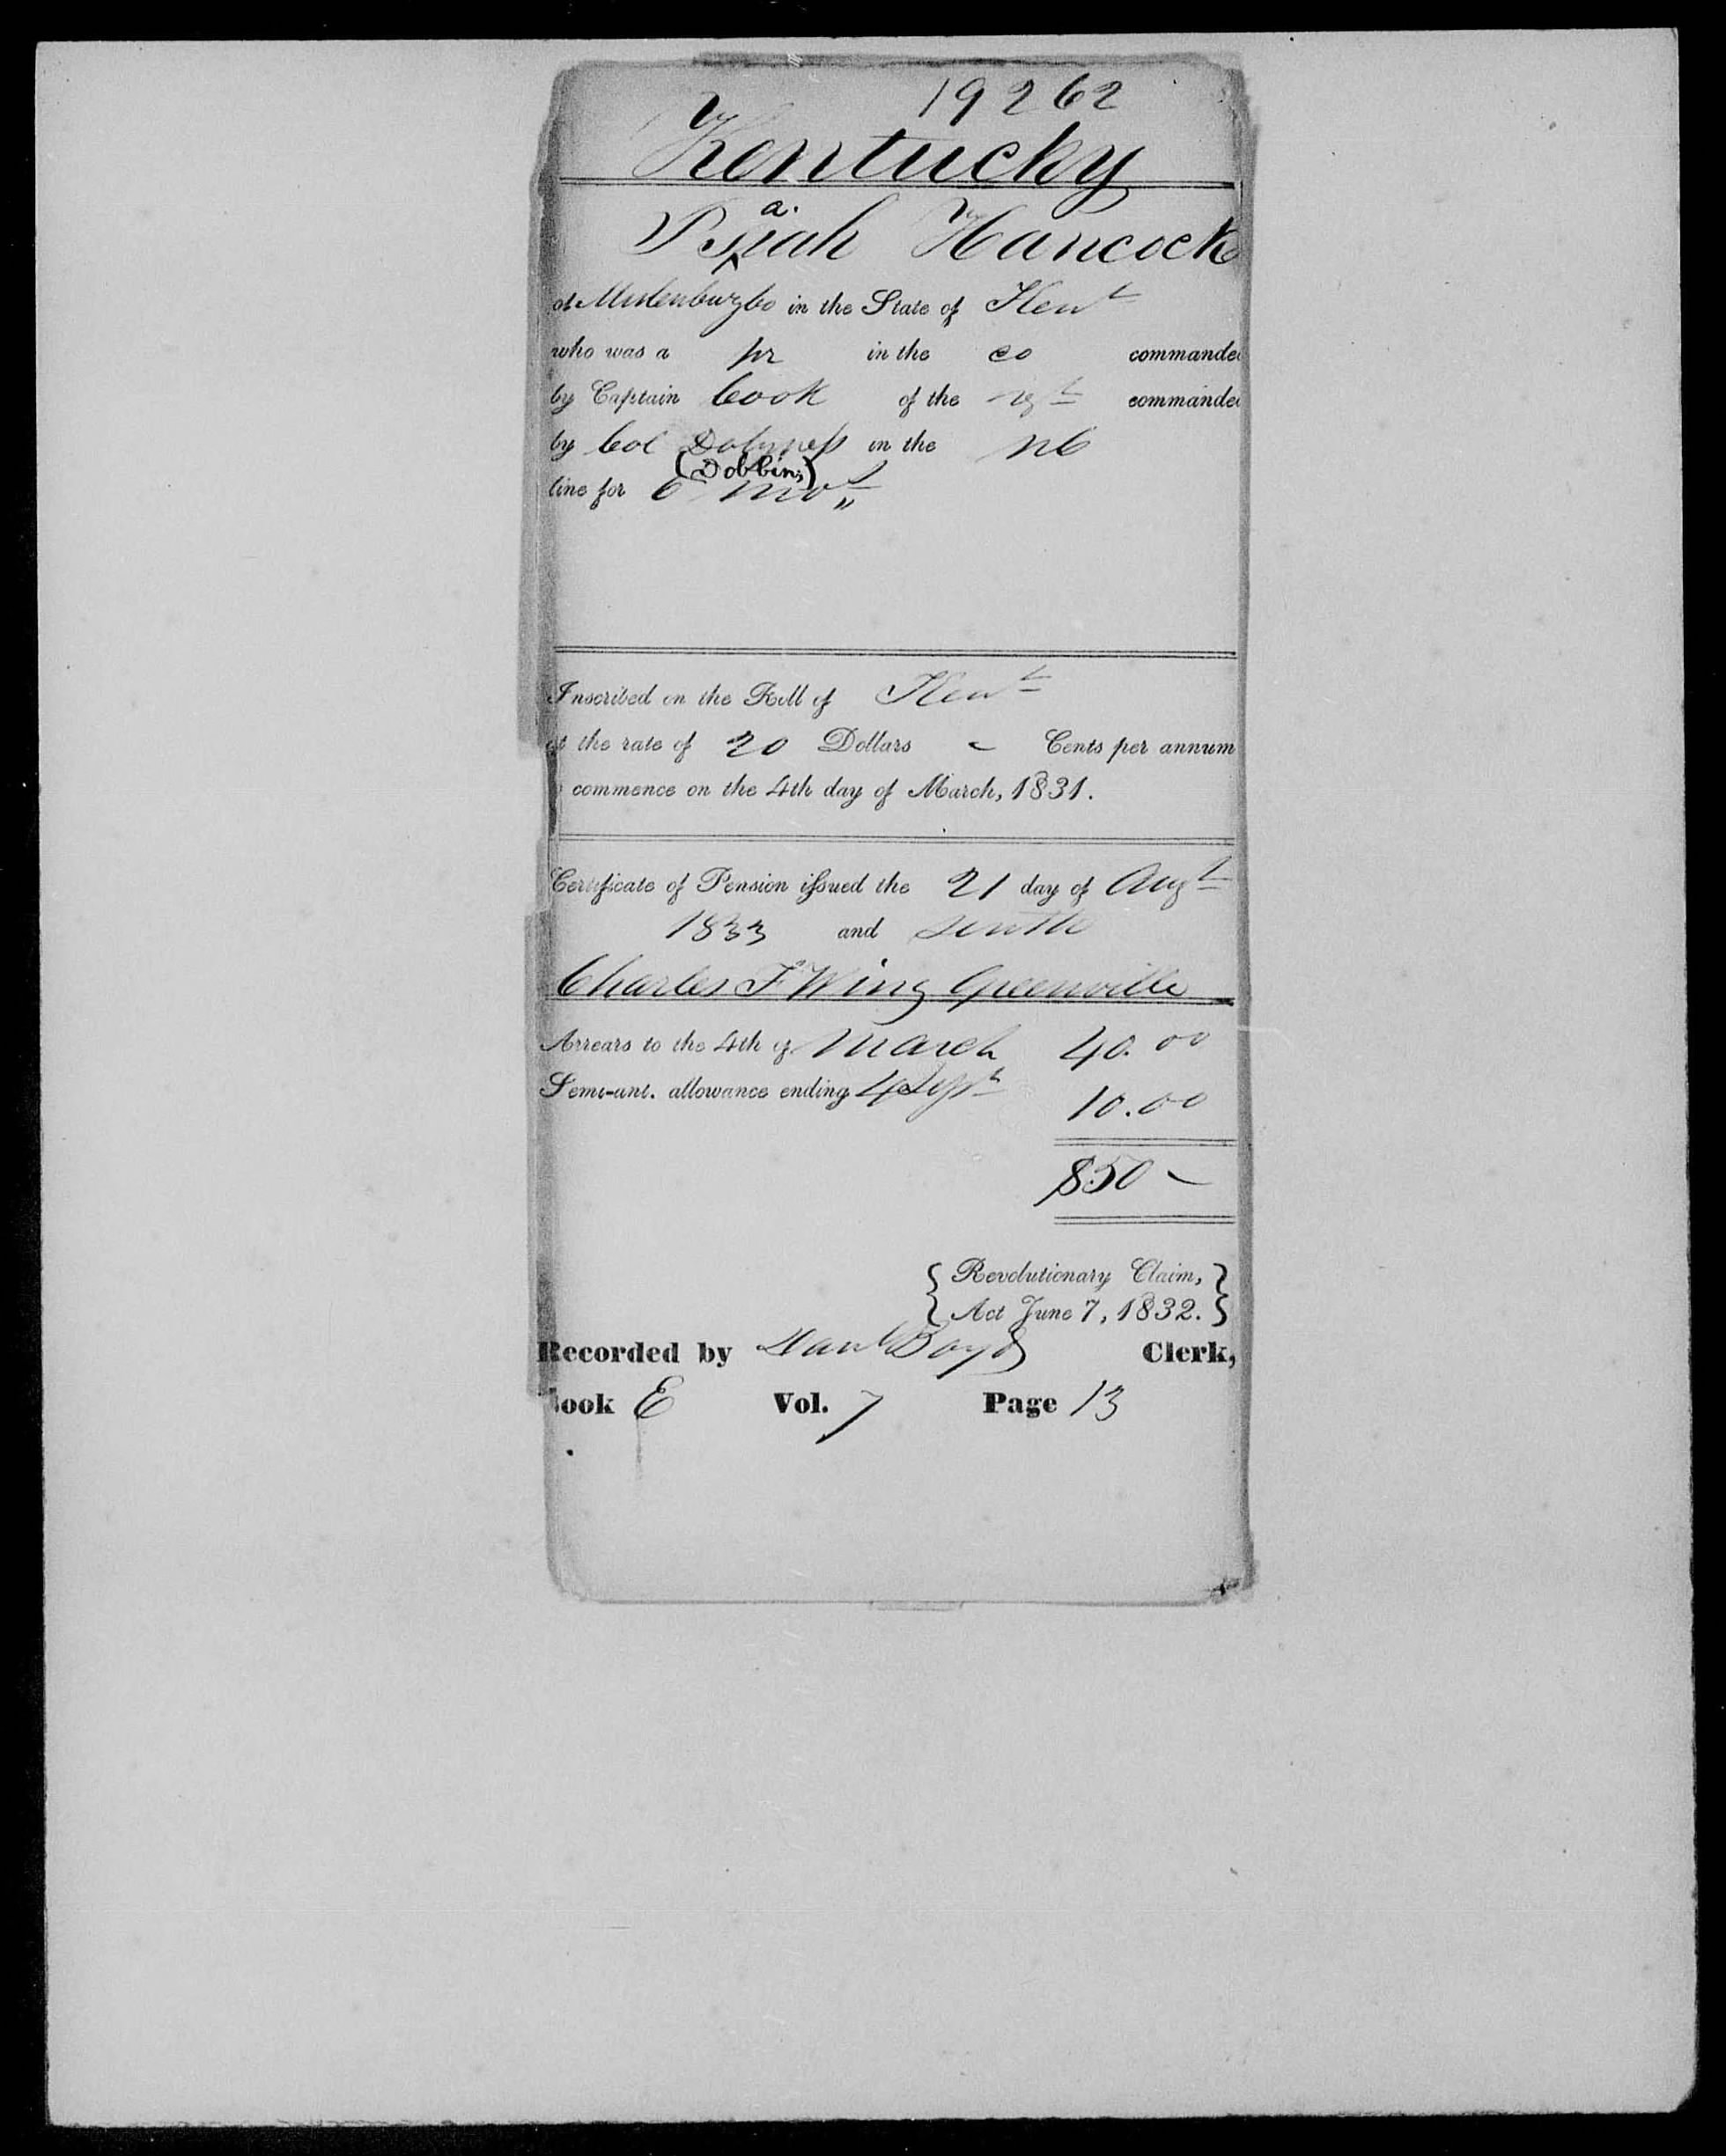 19262
Kentucky
a.
Isiah Hancock
of Mulenburg Co in the State of Kent
who was a pr in the co commanded
by Captain Cook of the regt commanded
by Col Dobyness in the NC
(Dobbins)
line for 6 mos
Inscribed on the Roll of Kent
at the rate of 20 Dollars - Cents per annum
commence on the 4th day of March, 1831.
Certificate of Pension issued the 21 day of Augt
1833 and sent to
Charles F Wing Greenville
Arrears to the 4th of March 40.00
Semi-anl. allowance ending 4 Sept 10.00
$50 -
{ Revolutionary Claim, }
{ Act June 7, 1832. }
Recorded by Danl Boyd Clerk,
Book E Vol. 7 Page 13